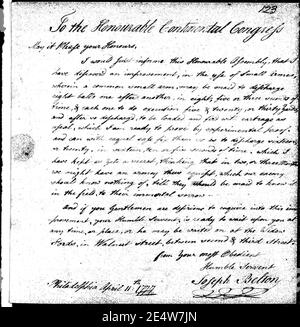 123
To the Honourable Continental Congress
May it Please your Honours,
I would just inform this Honourable Assembly, that I
have discovered an improvement, in the use of Small Arms,
wherein a common small arm, may be maid to discharge
eight balls one after another, in eight, five or three seconds of
time, & each one to do execution five & twenty, or thirty yards,
and after so discharg'd, to be loaded and fire'd with cartrage as
usual, which I am ready to prove by experimental proof.
I can with equal ease fix them so as to discharge sixteen
or twenty, in sixteen, ten or five seconds of time, which I
have kept as yet a secret, thinking that in two, or three Months
we might have an army thus equipt, which our enemy
should know nothing of, till they should be maid to know it
in the field, to their immortal sorrow
And if you Gentlemen are desirous to enquire into this im-
provement, your Humble Servant, is ready to wait upon you at
any time, or place, or he may be waited on at the Widow
Fords, in Walnut Street, between second & third Street.
from your most Obedient
Humble Servant
Joseph Belton
Philadelphia April 11th 1777
alamy
Image ID: 2E4W7JN
www.alamy.com